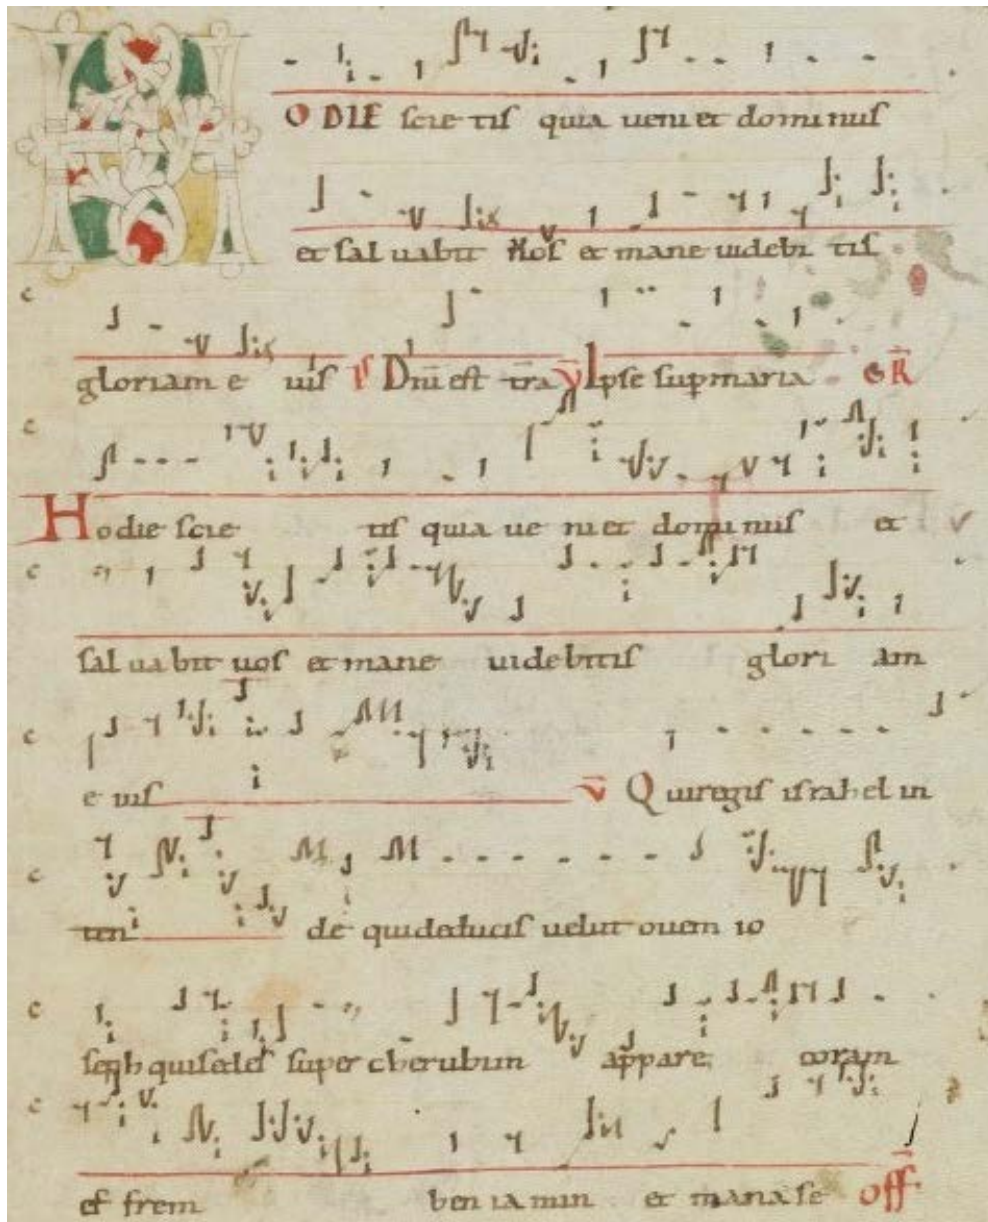 HODIE scietis quia veniet dominus
et saluabit Nos et mane uidebitis
gloriam eius ps Dnī est tr̄a v̄ Ipse sup maria GR̄
Hodie scietis quia ueniet dominus et
saluabit uos et mane uidebitis gloriam
eius v̄ Qui regis israhel in
tende qui deducis uelut ouem io
seph qui sedes super cherubim appare coram
effrem beniamin et manase off